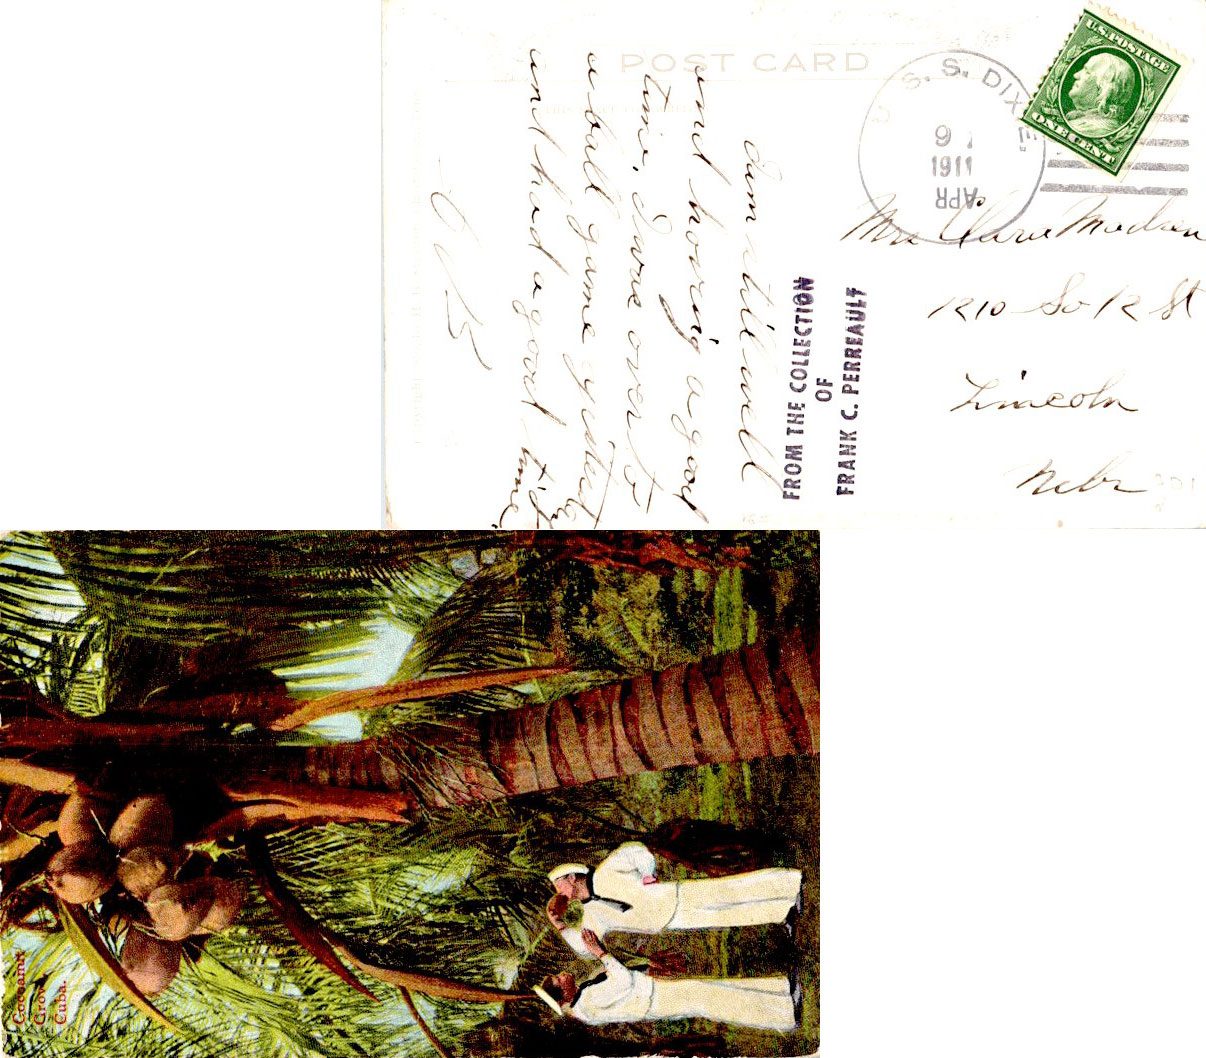 POST CARD
U.S. POSTAGE
ONE CENT
U. S. S. DIXIE.
6
APR
1911
Mrs Clara Madsen
1210 So 12 St
Lincoln
Nebr
FROM THE COLLECTION
OF
FRANK C. PERREAULT
Am still well
and having a good
time, I was over to
a ball game yesterday
and had a good time.
Cocoanut
Grove
Cuba.